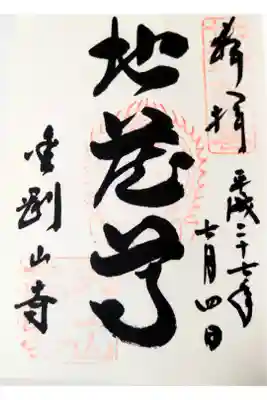 奉拝
平成二十七年
七月四日
地蔵尊
金剛山寺